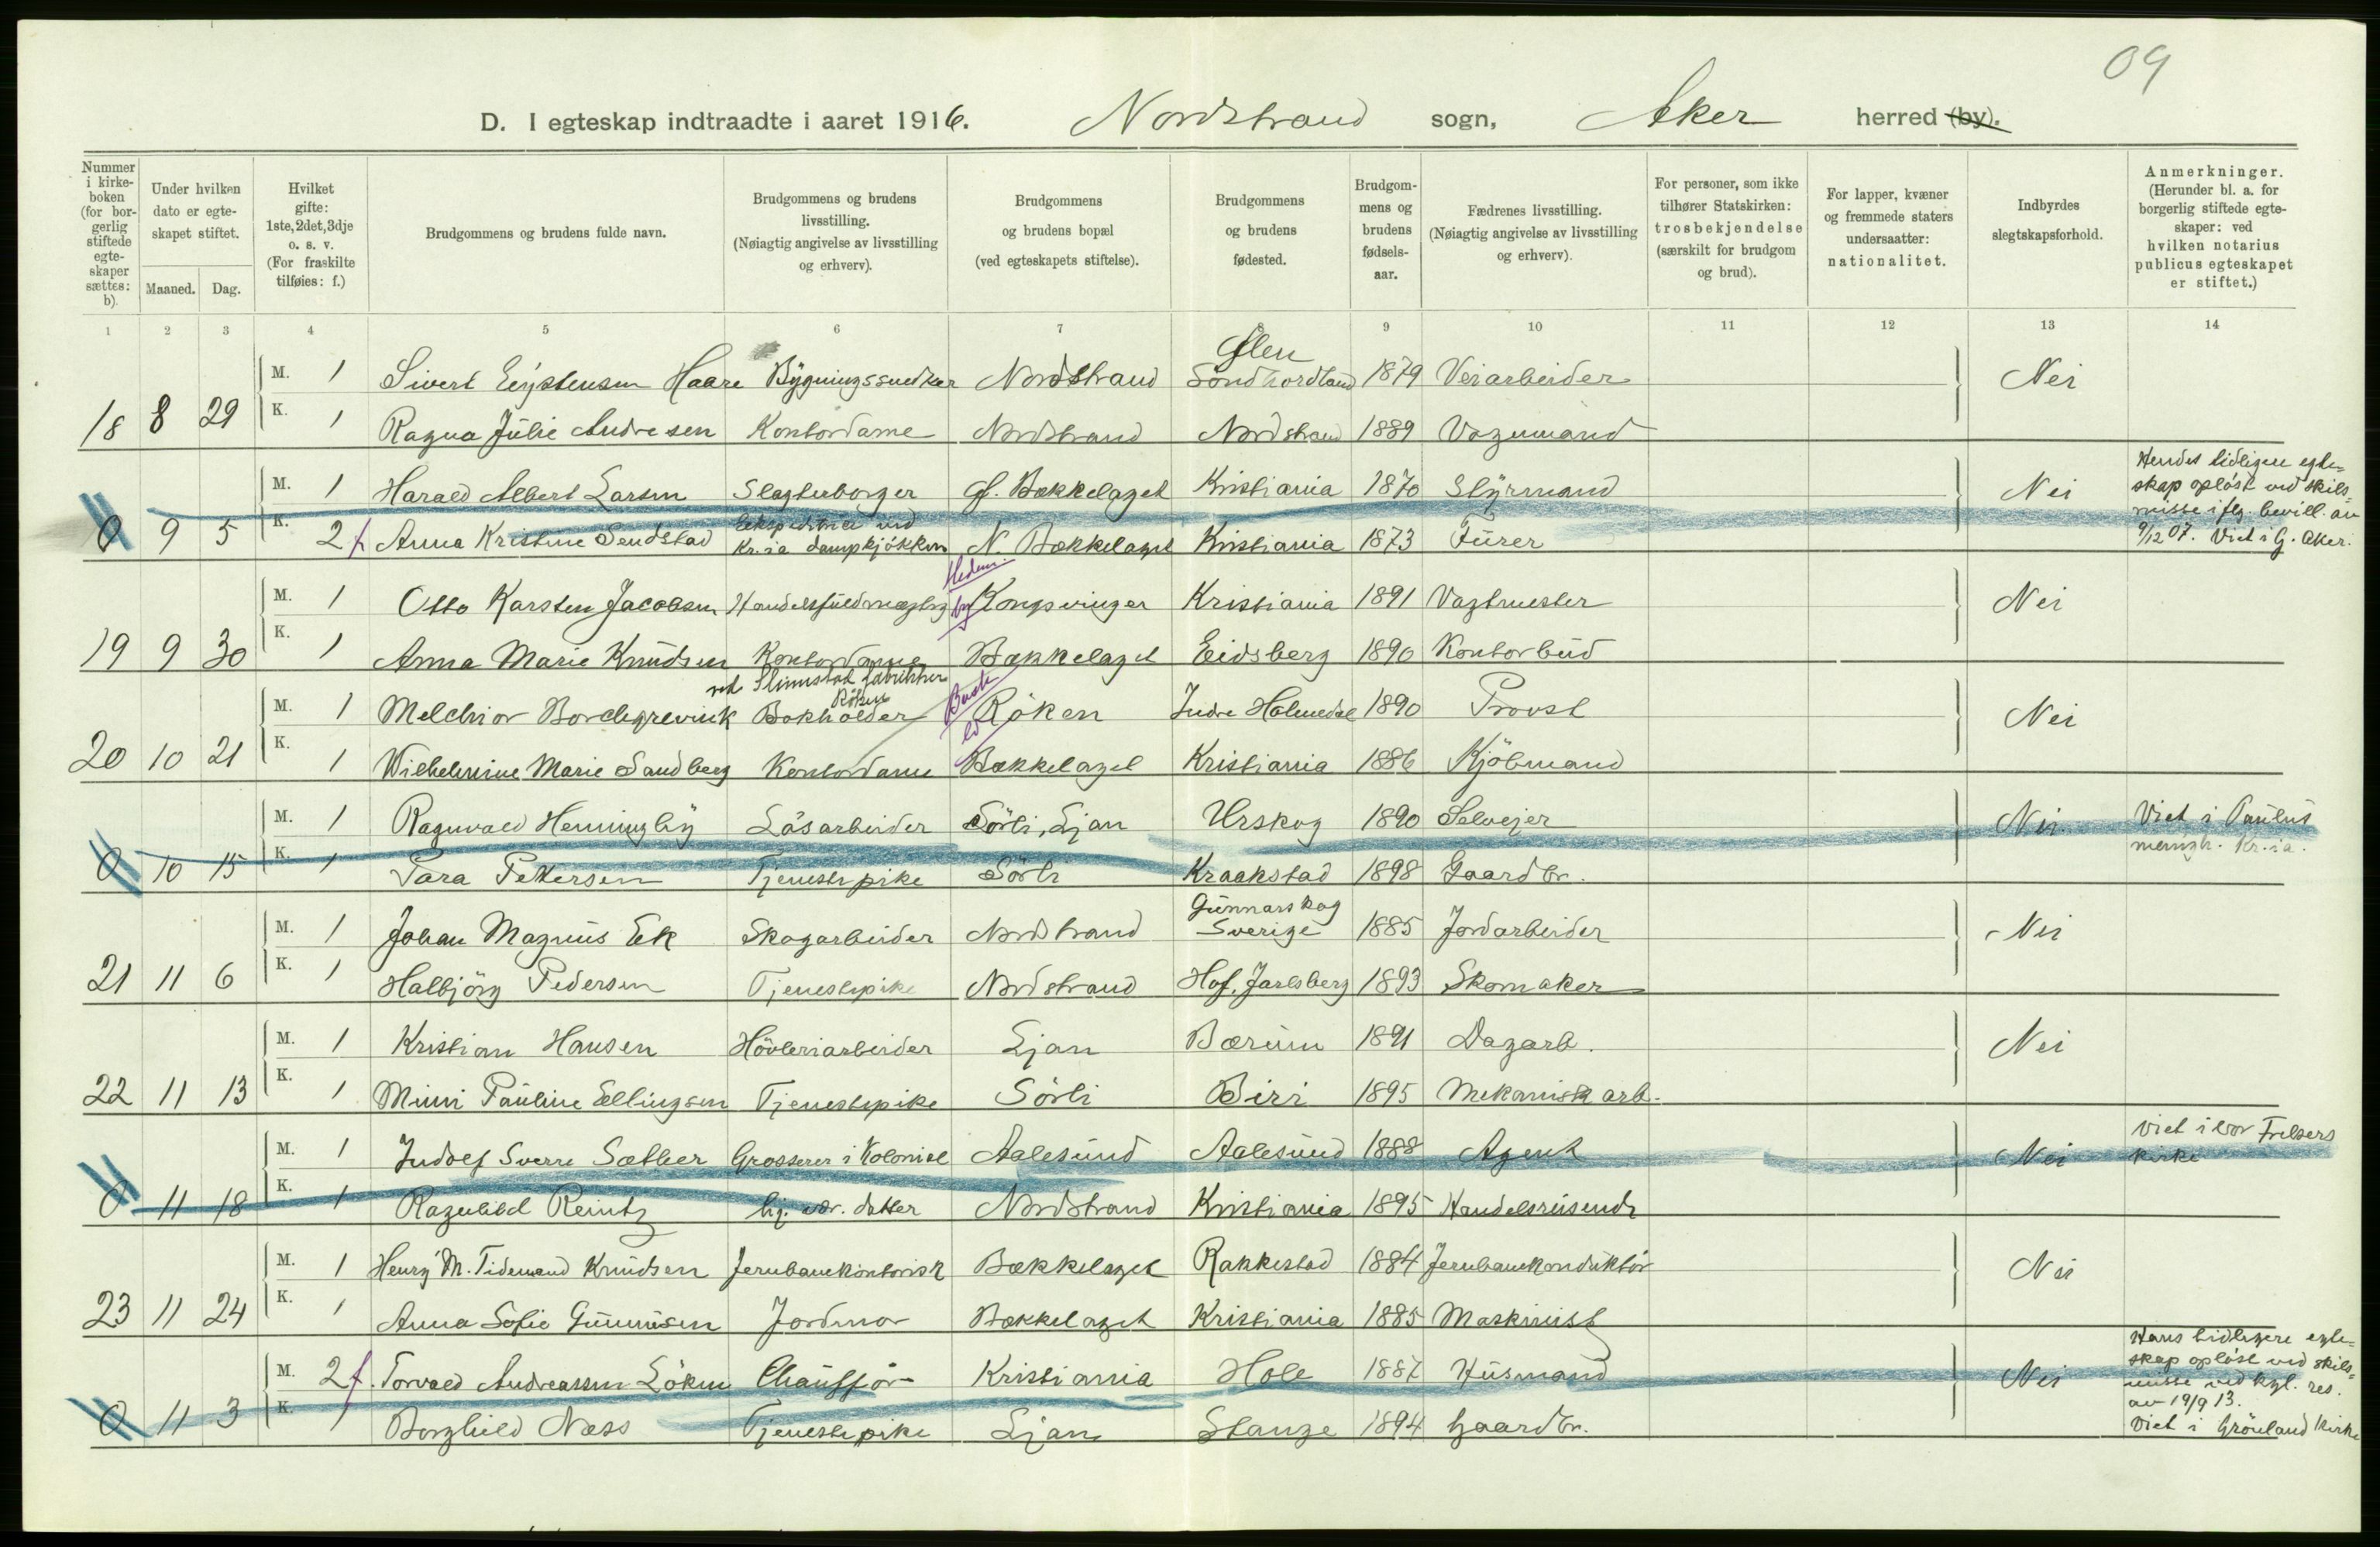 09
D. I egteskap indtraadte i aaret 1916. Nordstrand sogn, Aker herred (by).
Nummer i kirkeboken (for borgerlig stiftede egteskaper sættes: b).
Under hvilken dato er egteskapet stiftet.
Maaned. Dag.
Hvilket gifte: 1ste, 2det, 3dje o. s. v. (For fraskilte tilføies: f.)
Brudgommens og brudens fulde navn.
Brudgommens og brudens livsstilling. (Nøiagtig angivelse av livsstilling og erhverv).
Brudgommens og brudens bopæl (ved egteskapets stiftelse).
Brudgommens og brudens fødested.
Brudgommens og brudens fødselsaar.
Fædrenes livsstilling. (Nøiagtig angivelse av livsstilling og erhverv).
For personer, som ikke tilhører Statskirken: trosbekjendelse (særskilt for brudgom og brud).
For lapper, kvæner og fremmede staters undersaatter: nationalitet.
Indbyrdes slegtskapsforhold.
Anmerkninger. (Herunder bl. a. for borgerlig stiftede egteskaper: ved hvilken notarius publicus egteskapet er stiftet.)
1 2 3 4 5 6 7 8 9 10 11 12 13 14
M. 1 Sivert Eystensen Haare Bygningssnedker Nordstrand Ølen Söndhordland 1879 Veiarbeider Nei
18 8 29 K. 1 Ragna Julie Andresen Kontordame Nordstrand Nordstrand 1889 Vognmand
M. 1 Harald Albert Larsen Slagterborger Gl. Bækkelaget Kristiania 1870 Styrmand Nei
Hendes tidligere egte=
skap opløst ved skils=
misse iflg. bevill. av
9/12 07. Viet i G. Aker.
0 9 5 K. 2 f Anna Kristine Sendstad Ekspeditrice ved Kr.ia dampkjøkken N. Bækkelaget Kristiania 1873 Furer
M. 1 Otto Karsten Jacobsen Handelsfuldmægtig Hedem. by Kongsvinger Kristiania 1891 Vagtmester Nei
19 9 30 K. 1 Anna Marie Knudsen Kontordame Bækkelaget Eidsberg 1890 Kontorbud
M. 1 Melchior Borchgrevink Bokholder ved Slemmestad fabrikker Röken Busk. Röken Indre Holmedal 1890 Provst Nei
20 10 21 K. 1 Wilhelmine Marie Sandberg Kontordame Bækkelaget Kristiania 1886 Kjöbmand
M. 1 Ragnvald Henningby Løsarbeider Sörli, Ljan Urskog 1890 Selveier Nei
Viet i Paulus
menigh. Kr.ia.
0 10 15 K. 1 Tara Pettersen Tjenestepike Sörli Kraakstad 1898 Gaardbr.
M. 1 Johan Magnus Ek Skogarbeider Nordstrand Gunnarskog Sverige 1885 Jordarbeider Nei
21 11 6 K. 1 Halbjörg Pedersen Tjenestepike Nordstrand Hof, Jarlsberg 1893 Skomaker
M. 1 Kristian Hansen Hövleriarbeider Ljan Bærum 1891 Dagarb. Nei
22 11 13 K. 1 Mimi Pauline Ellingsen Tjenestepike Sörli Biri 1895 Mekanisk arb.
M. 1 Indolf Sverre Sætter Grosserer i Kolonial Aalesund Aalesund 1888 Agent Nei
Viet i Vor Frelsers
kirke
0 11 18 K. 1 Ragnhild Reintz hj. vær. datter Nordstrand Kristiania 1895 Handelsreisende
M. 1 Henry M. Tidemand Knudsen Jernbanekontorist Bækkelaget Rakkestad 1884 Jernbanekonduktör Nei
23 11 24 K. 1 Anna Sofie Gummesen Jordmor Bækkelaget Kristiania 1885 Maskinist
M. 2 f. Torvald Andreassen Löken Chaufför Kristiania Hole 1887 Husmand Nei
Hans tidligere egte=
skap opløst ved skils=
misse ved kgl. res.
av 19/9 13.
Viet i Grönland Kirke
0 11 3 K. 1 Borghild Næss Tjenestepike Ljan Stange 1894 Gaardbr.